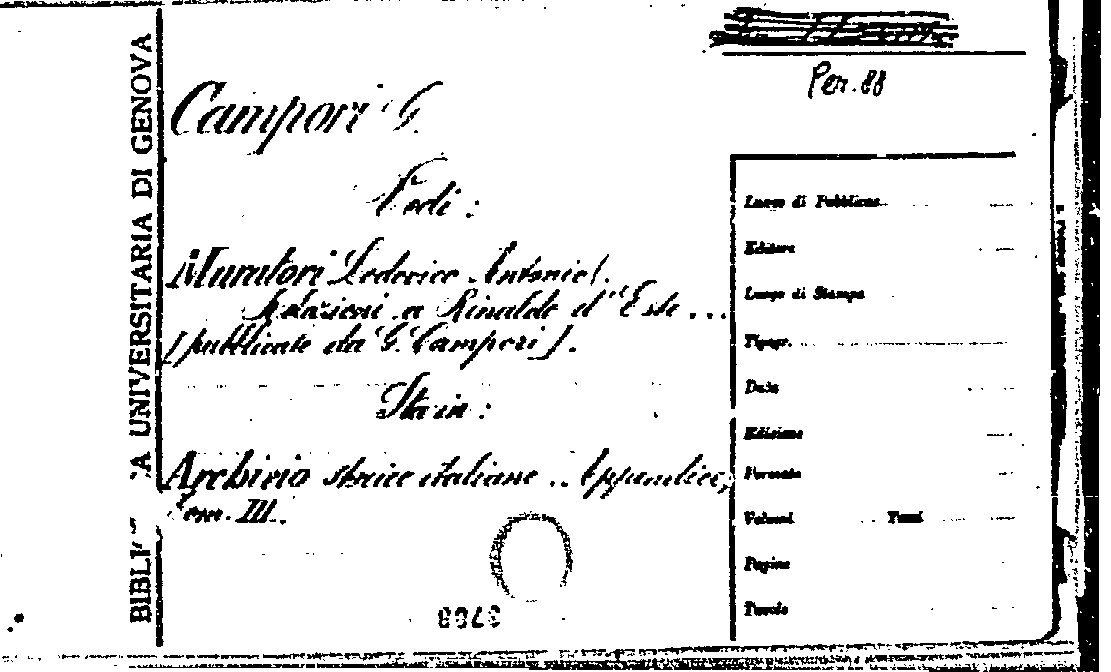 BIBLI CA UNIVERSITARIA DI GENOVA
Per. 88
Campori G.
Vedi :
Muratori Lodovico Antonio.
Relazioni a Rinaldo d'Este ...
[pubblicate da G. Campori].
Sta in :
Archivio storico italiano .. Appendice,
Tom. III.
3708
Luogo di Pubblicaz.
Editore
Luogo di Stampa
Tipogr.
Data
Edizione
Formato
Volumi Tomi
Pagine
Tavole